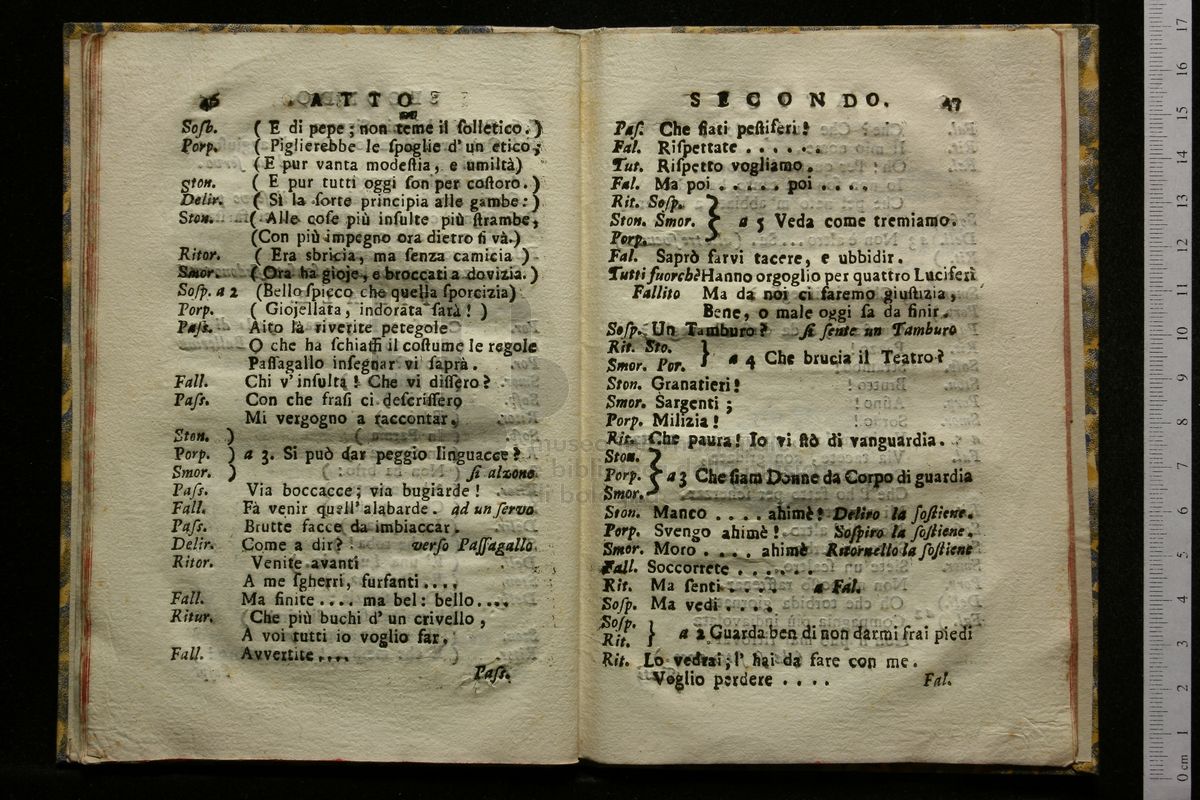 46 ATTO
Sosp. ( E di pepe; non teme il ſolletico.)
Porp. ( Piglierebbe le ſpoglie d'un etico;
(E pur vanta modeſtia, e umiltà)
Ston. ( E pur tutti oggi ſon per coſtoro.)
Delir. ( Sì la ſorte principia alle gambe:)
Ston. ( Alle coſe più inſulte più ſtrambe,
(Con più impegno ora dietro ſi và.)
Ritor. ( Era sbricia, ma ſenza camicia )
Smor. ( Ora ha gioje, e broccati a dovizia.)
Soſp. a 2 (Bello ſpicco che quella ſporcizia)
Porp. ( Giojellata, indorata ſarà! )
Paſs. Aito là riverite petegole
O che ha ſchiaffi il coſtume le regole
Paſſagallo inſegnar vi ſaprà.
Fall. Chi v'inſulta! Che vi diſſero?
Paſs. Con che fraſi ci deſcriſſero
Mi vergogno a raccontar.
Ston. )
Porp. ) a 3. Si può dar peggio linguacce?
Smor. ) ſi alzono
Paſs. Via boccacce; via bugiarde!
Fall. Fà venir quell'alabarde. ad un ſervo
Paſs. Brutte facce da imbiaccar.
Delir. Come a dir? verſo Paſſagallo.
Ritor. Venite avanti
A me ſgherri, furfanti....
Fall. Ma finite.... ma bel: bello....
Ritur. Che più buchi d'un crivello,
A voi tutti io voglio far.
Fall. Avvertite....
Paſs.
SECONDO. 47
Paſ. Che fiati peſtiferi!
Fal. Riſpettate . . . . . .
Tut. Riſpetto vogliamo.
Fal. Ma poi . . . . . poi . . . .
Rit. Soſp.
Ston. Smor. } a 5 Veda come tremiamo.
Porp.
Fal. Saprò farvi tacere, e ubbidir.
Tutti fuorchè Hanno orgoglio per quattro Luciferi
Fallito Ma da noi ci faremo giuſtizia,
Bene, o male oggi ſa da finir.
Soſp. Un Tamburo? ſi ſente un Tamburo
Rit. Sto.
Smor. Por. } a 4 Che brucia il Teatro?
Ston. Granatieri!
Smor. Sargenti;
Porp. Milizia!
Rit. Che paura! Io vi ſtò di vanguardia.
Ston.
Porp. } a 3 Che ſiam Donne da Corpo di guardia
Smor.
Ston. Manco .... ahimè! Deliro la ſoſtiene.
Porp. Svengo ahimè! Soſpiro la ſoſtiene.
Smor. Moro .... ahimè Ritornello la ſoſtiene
Fall. Soccorrete . . . . . .
Rit. Ma ſenti . . . . a Fal.
Soſp. Ma vedi . . . .
Soſp.
Rit. } a 2 Guarda ben di non darmi frai piedi
Rit. Lo vedrai; l'hai da fare con me.
Voglio perdere . . . .
Fal.